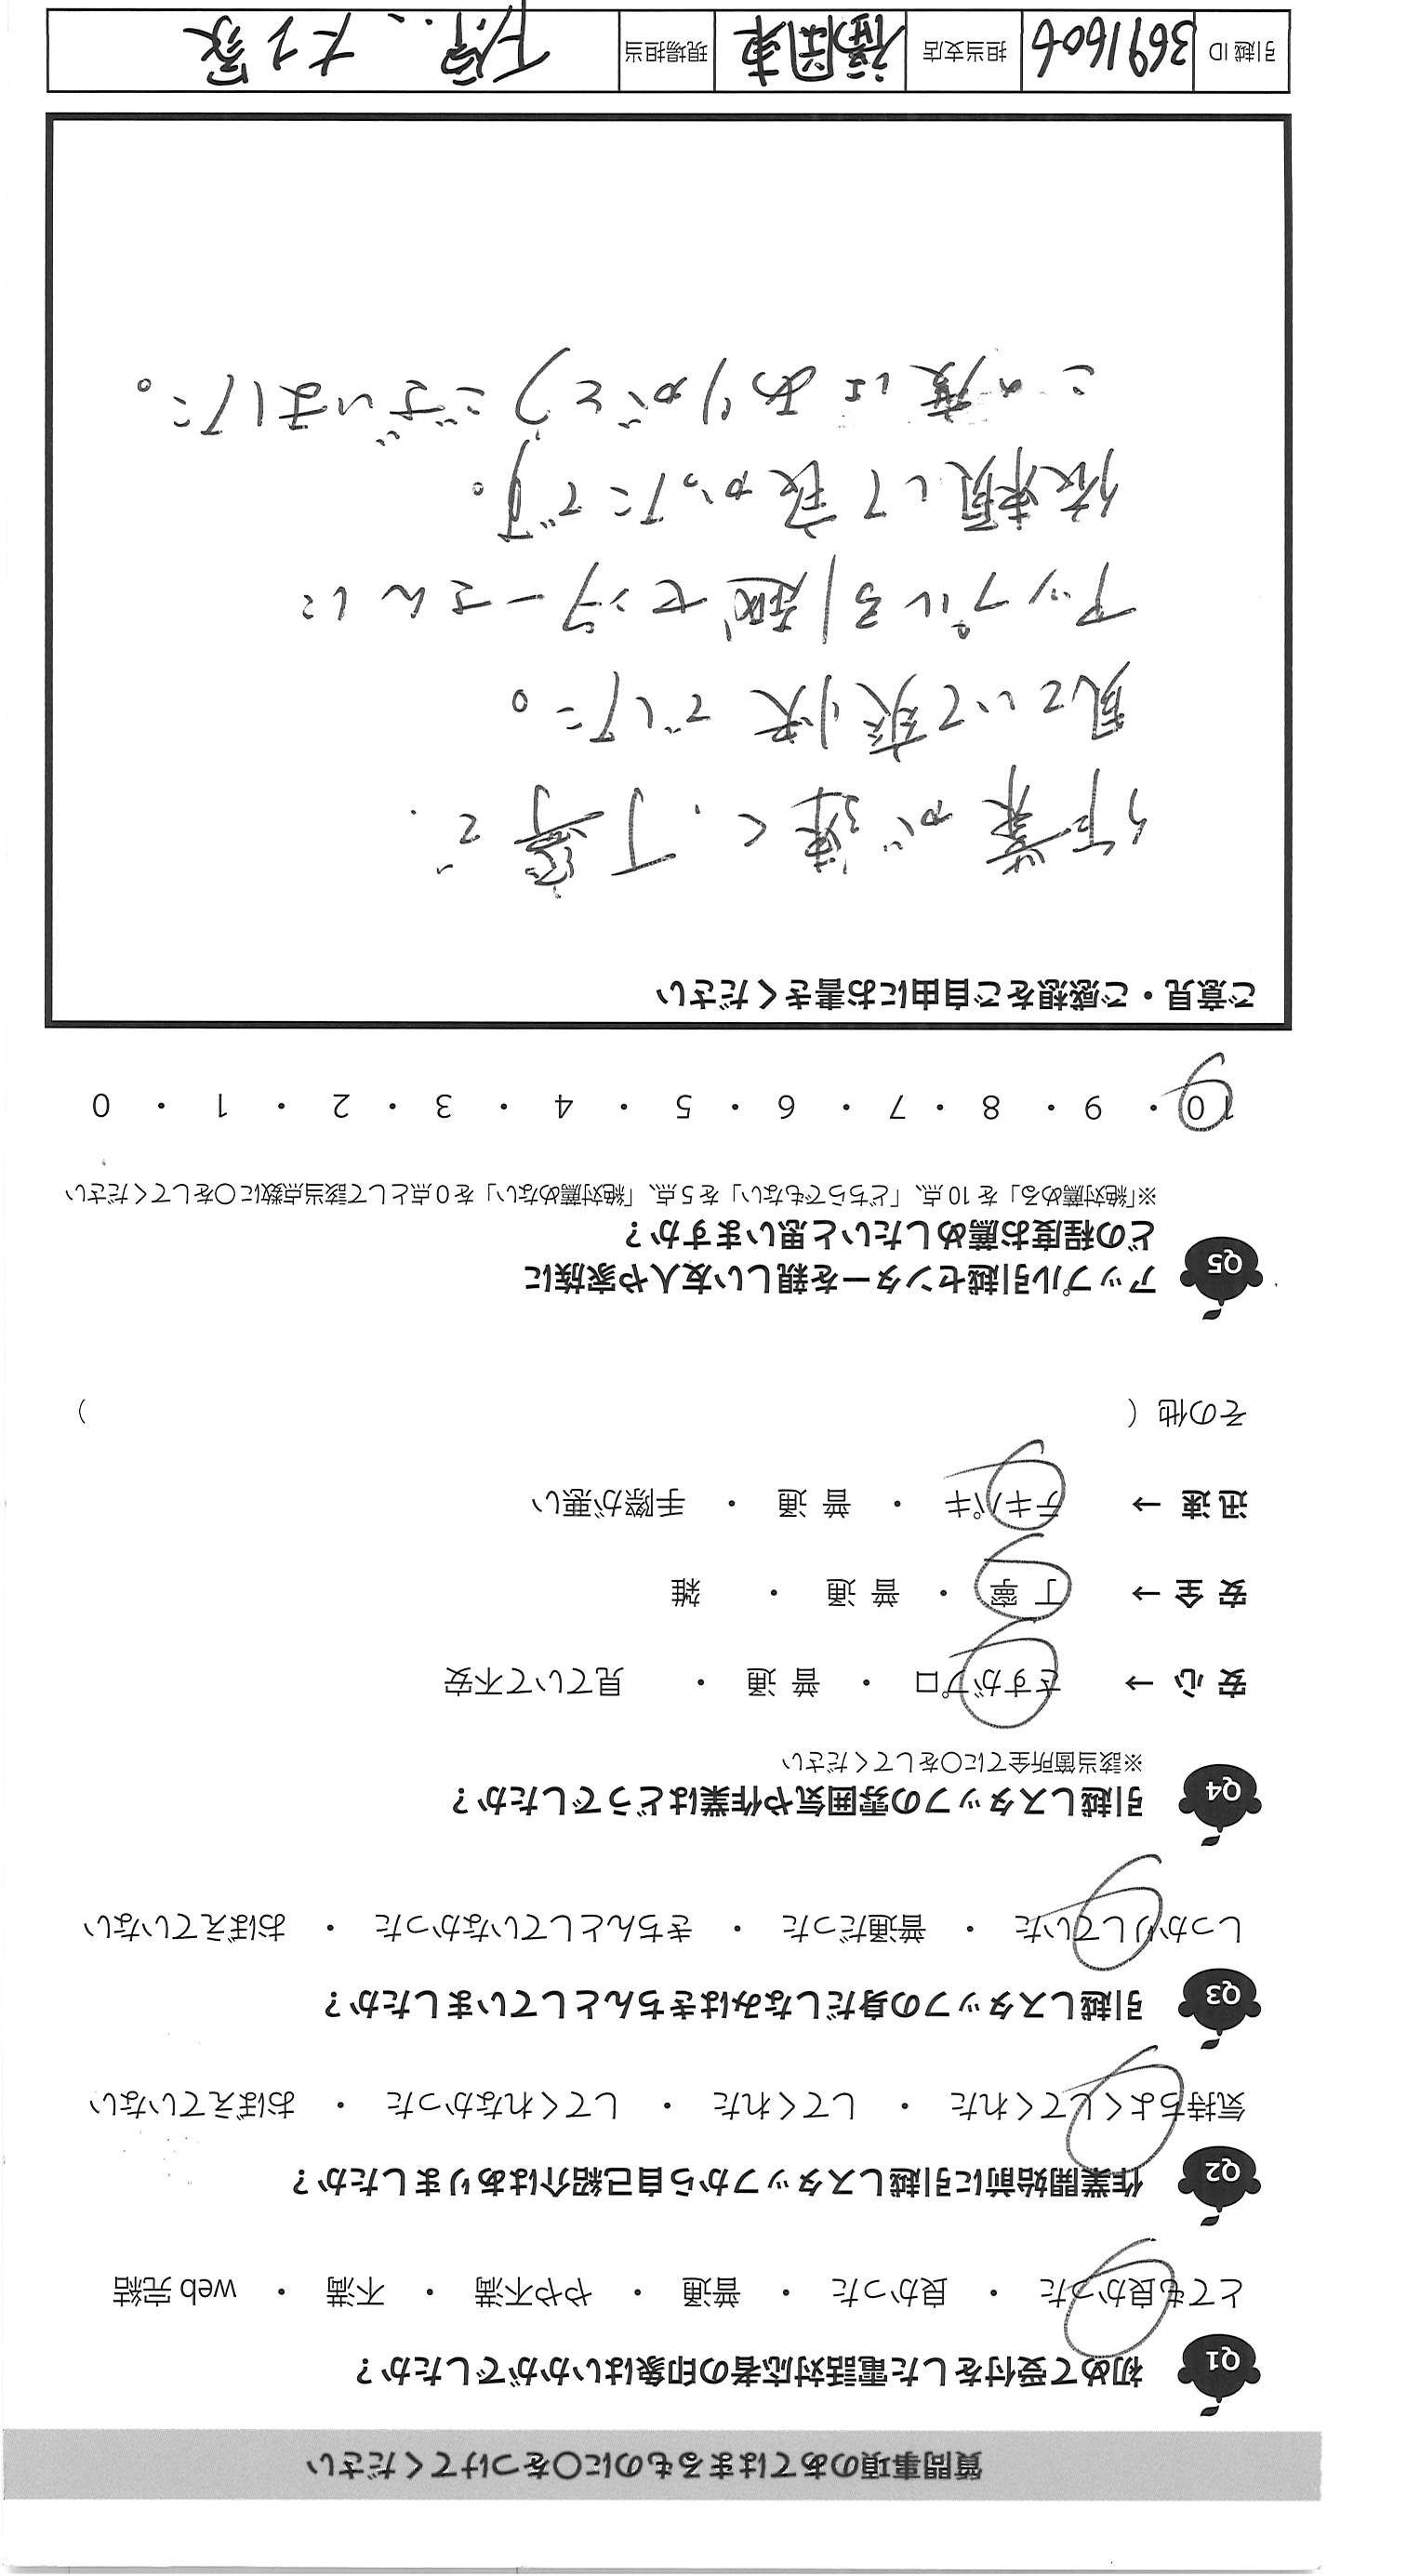 質問事項のあてはまるものに〇をつけてください
Q1 初めて受付をした電話対応者の印象はいかがでしたか？
とても良かった ・ 良かった ・ 普通 ・ やや不満 ・ 不満 ・ web 完結
Q2 作業開始前に引越しスタッフから自己紹介はありましたか？
気持ちよくしてくれた ・ してくれた ・ してくれなかった ・ おぼえていない
Q3 引越しスタッフの身だしなみはきちんとしていましたか？
しっかりしていた ・ 普通だった ・ きちんとしていなかった ・ おぼえていない
Q4 引越しスタッフの雰囲気や作業はどうでしたか？
※該当箇所全てに〇をしてください
安心 → さすがプロ ・ 普通 ・ 見ていて不安
安全 → 丁寧 ・ 普通 ・ 雑
迅速 → テキパキ ・ 普通 ・ 手際が悪い
その他（ ）
Q5 アップル引越センターを親しい友人や家族に
どの程度お薦めしたいと思いますか？
※「絶対薦める」を 10 点、「どちらでもない」を 5 点、「絶対薦めない」を 0 点として該当点数に〇をしてください
10 ・ 9 ・ 8 ・ 7 ・ 6 ・ 5 ・ 4 ・ 3 ・ 2 ・ 1 ・ 0
ご意見・ご感想をご自由にお書きください
作業が速く、丁寧で、
見ていて爽快でした。
アップル引越センターさんに
依頼して良かったです。
この度はありがとうございました。
引越 ID 3691606 担当支店 福岡東 現場担当